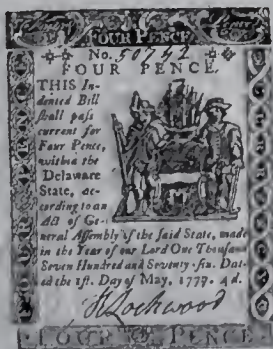 FOUR PENCE
No. 50792
FOUR PENCE.
THIS In-
dented Bill
ſhall paſs
current for
Four Pence,
within the
Delaware
State, ac-
cording to an
Act of Ge-
neral Aſſembly of the ſaid State, made
in the Year of our Lord One Thouſand
Seven Hundred and Seventy-ſix. Dat-
ed the 1ſt. Day of May, 1777. 4d.
FOUR PENCE
FOUR PENCE